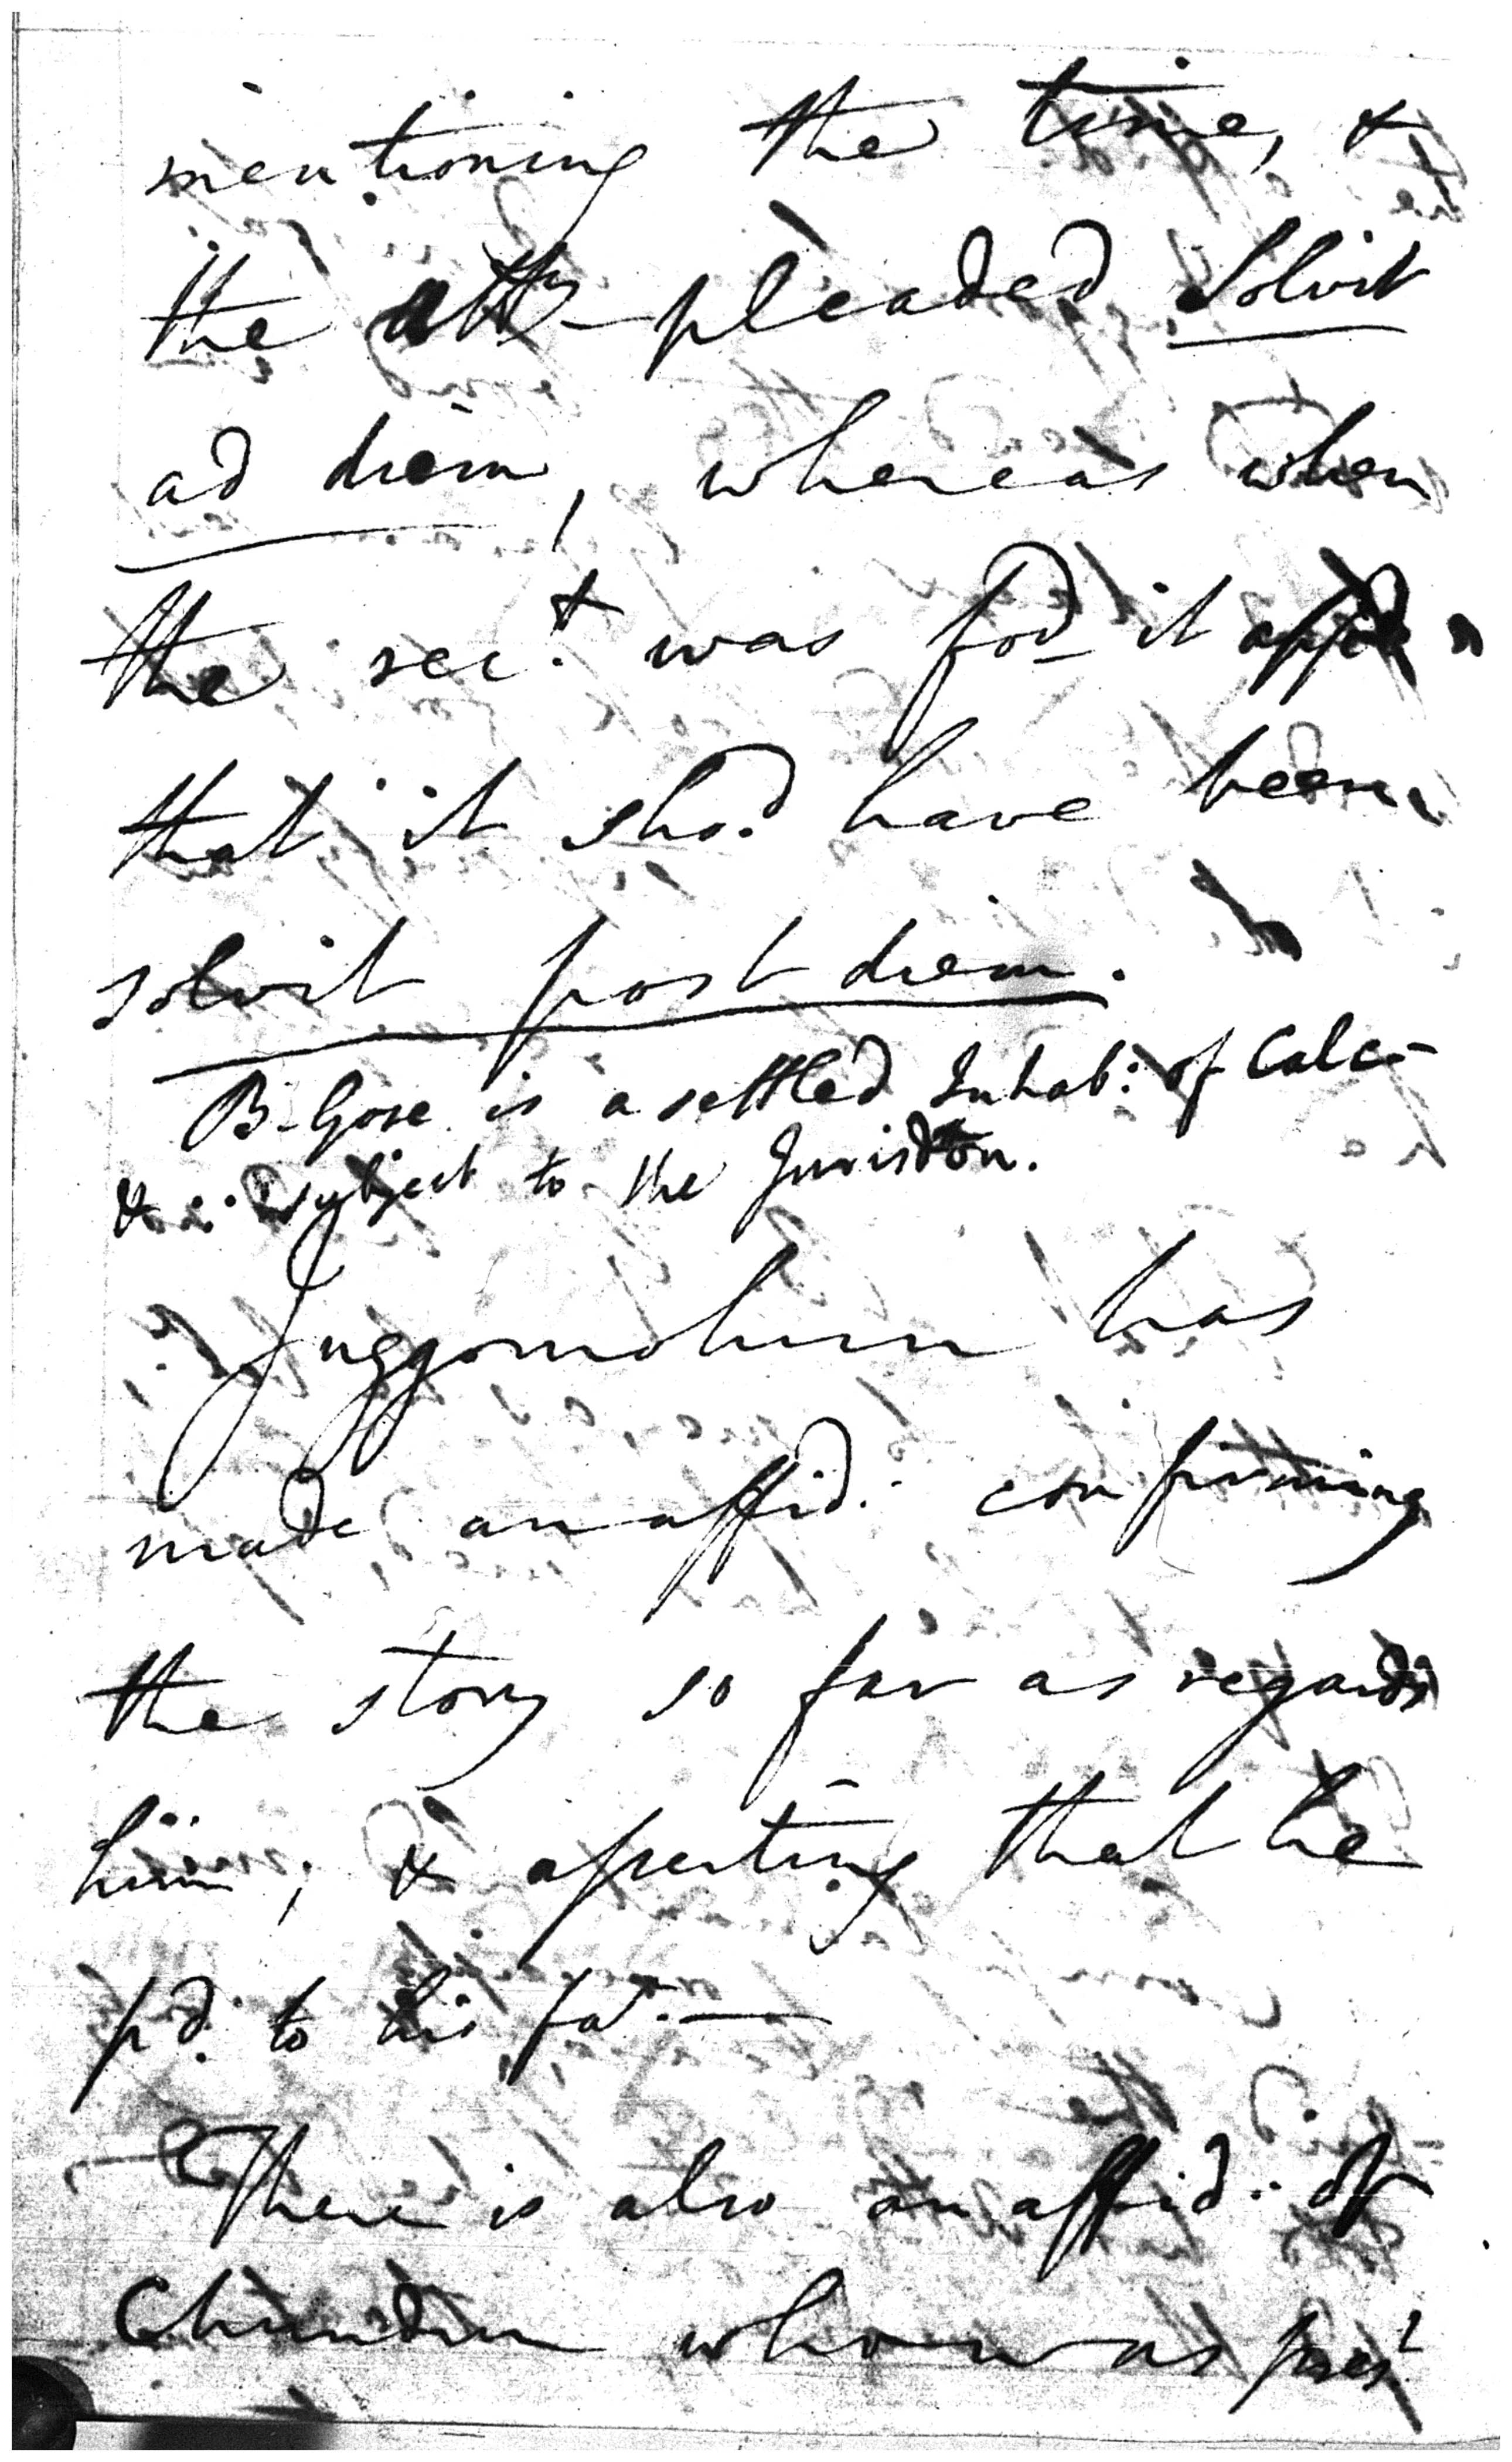 mentioning the time, &
the atty pleaded Solvit
ad diem, whereas when
the rect. was fod it appd
that it shod. have been
solvit post diem.
B. Gose is a settled Inhab: of Calc-
& subject to the Jurisdton.
Juggomohun has
made an affid: confirming
the story so far as regards
him; & asserting that he
pd. to his far.
There is also an affid: of
Chundun who was prest